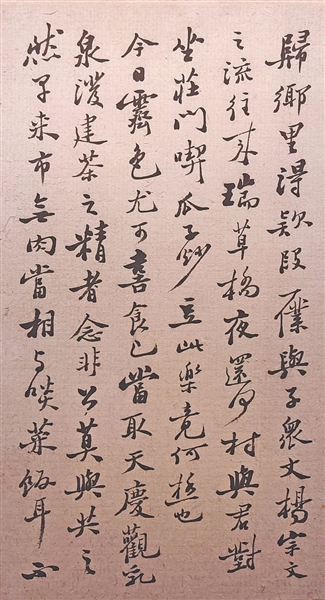 歸鄉里得欵段僕與子衆丈楊宗文
之流往来瑞草橋夜還何村與君對
坐莊門喫瓜子炒豆此樂竟何極也
今日霽色尤可喜食已當取天慶觀乳
泉潑建茶之精者念非公莫與共之
然早来市無肉當相与啖菜飯耳不